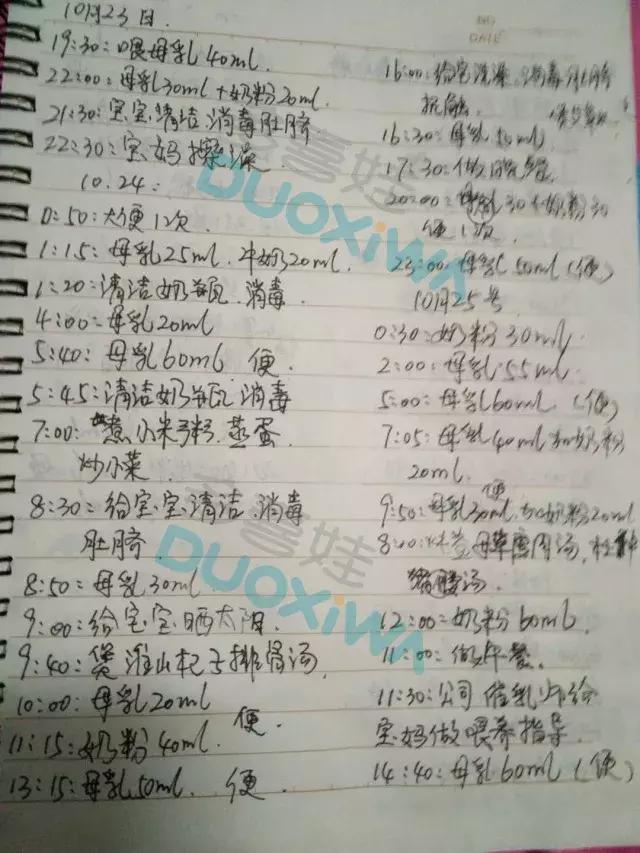 10月23日.
19:30:喂母乳40ml.
22:00:母乳30ml+奶粉20ml.
21:30:宝宝清洁.消毒肚脐
22:30:宝妈擦澡
10.24:
0:50:大便1次.
1:15:母乳25ml.冲奶20ml.
1:20:清洁奶瓶.消毒
4:00:母乳20ml
5:40:母乳60ml 便.
5:45:清洁奶瓶 消毒
7:00:煮小米粥.蒸蛋.
炒小菜.
8:30:给宝宝清洁.消毒
肚脐.
8:50:母乳30ml
9:00:给宝宝晒太阳.
9:40:煲淮山杞子排骨汤.
10:00:母乳20ml
便.
11:15:奶粉40ml.
13:15:母乳50ml. 便.
NO
DATE
16:00:给宝洗澡.消毒肚脐
抚触.
16:30:母乳50ml
17:30:做晚餐.
20:00:母乳30+奶粉30
便1次.
23:00:母乳50ml(便)
10月25号
0:30:奶粉30ml.
2:00:母乳55ml
5:00:母乳60ml.(便)
7:05:母乳40ml加奶粉
20ml.
便
9:50:母乳30ml.加奶粉20ml
8:00: 肉汤,杜仲
猪腰汤.
12:00:奶粉60ml.
11:00:做午餐.
11:30:公司催乳师给
宝妈做喂养指导.
14:40:母乳60ml(便)
多喜娃
DUOXiWA
多喜娃
DUOXiWA